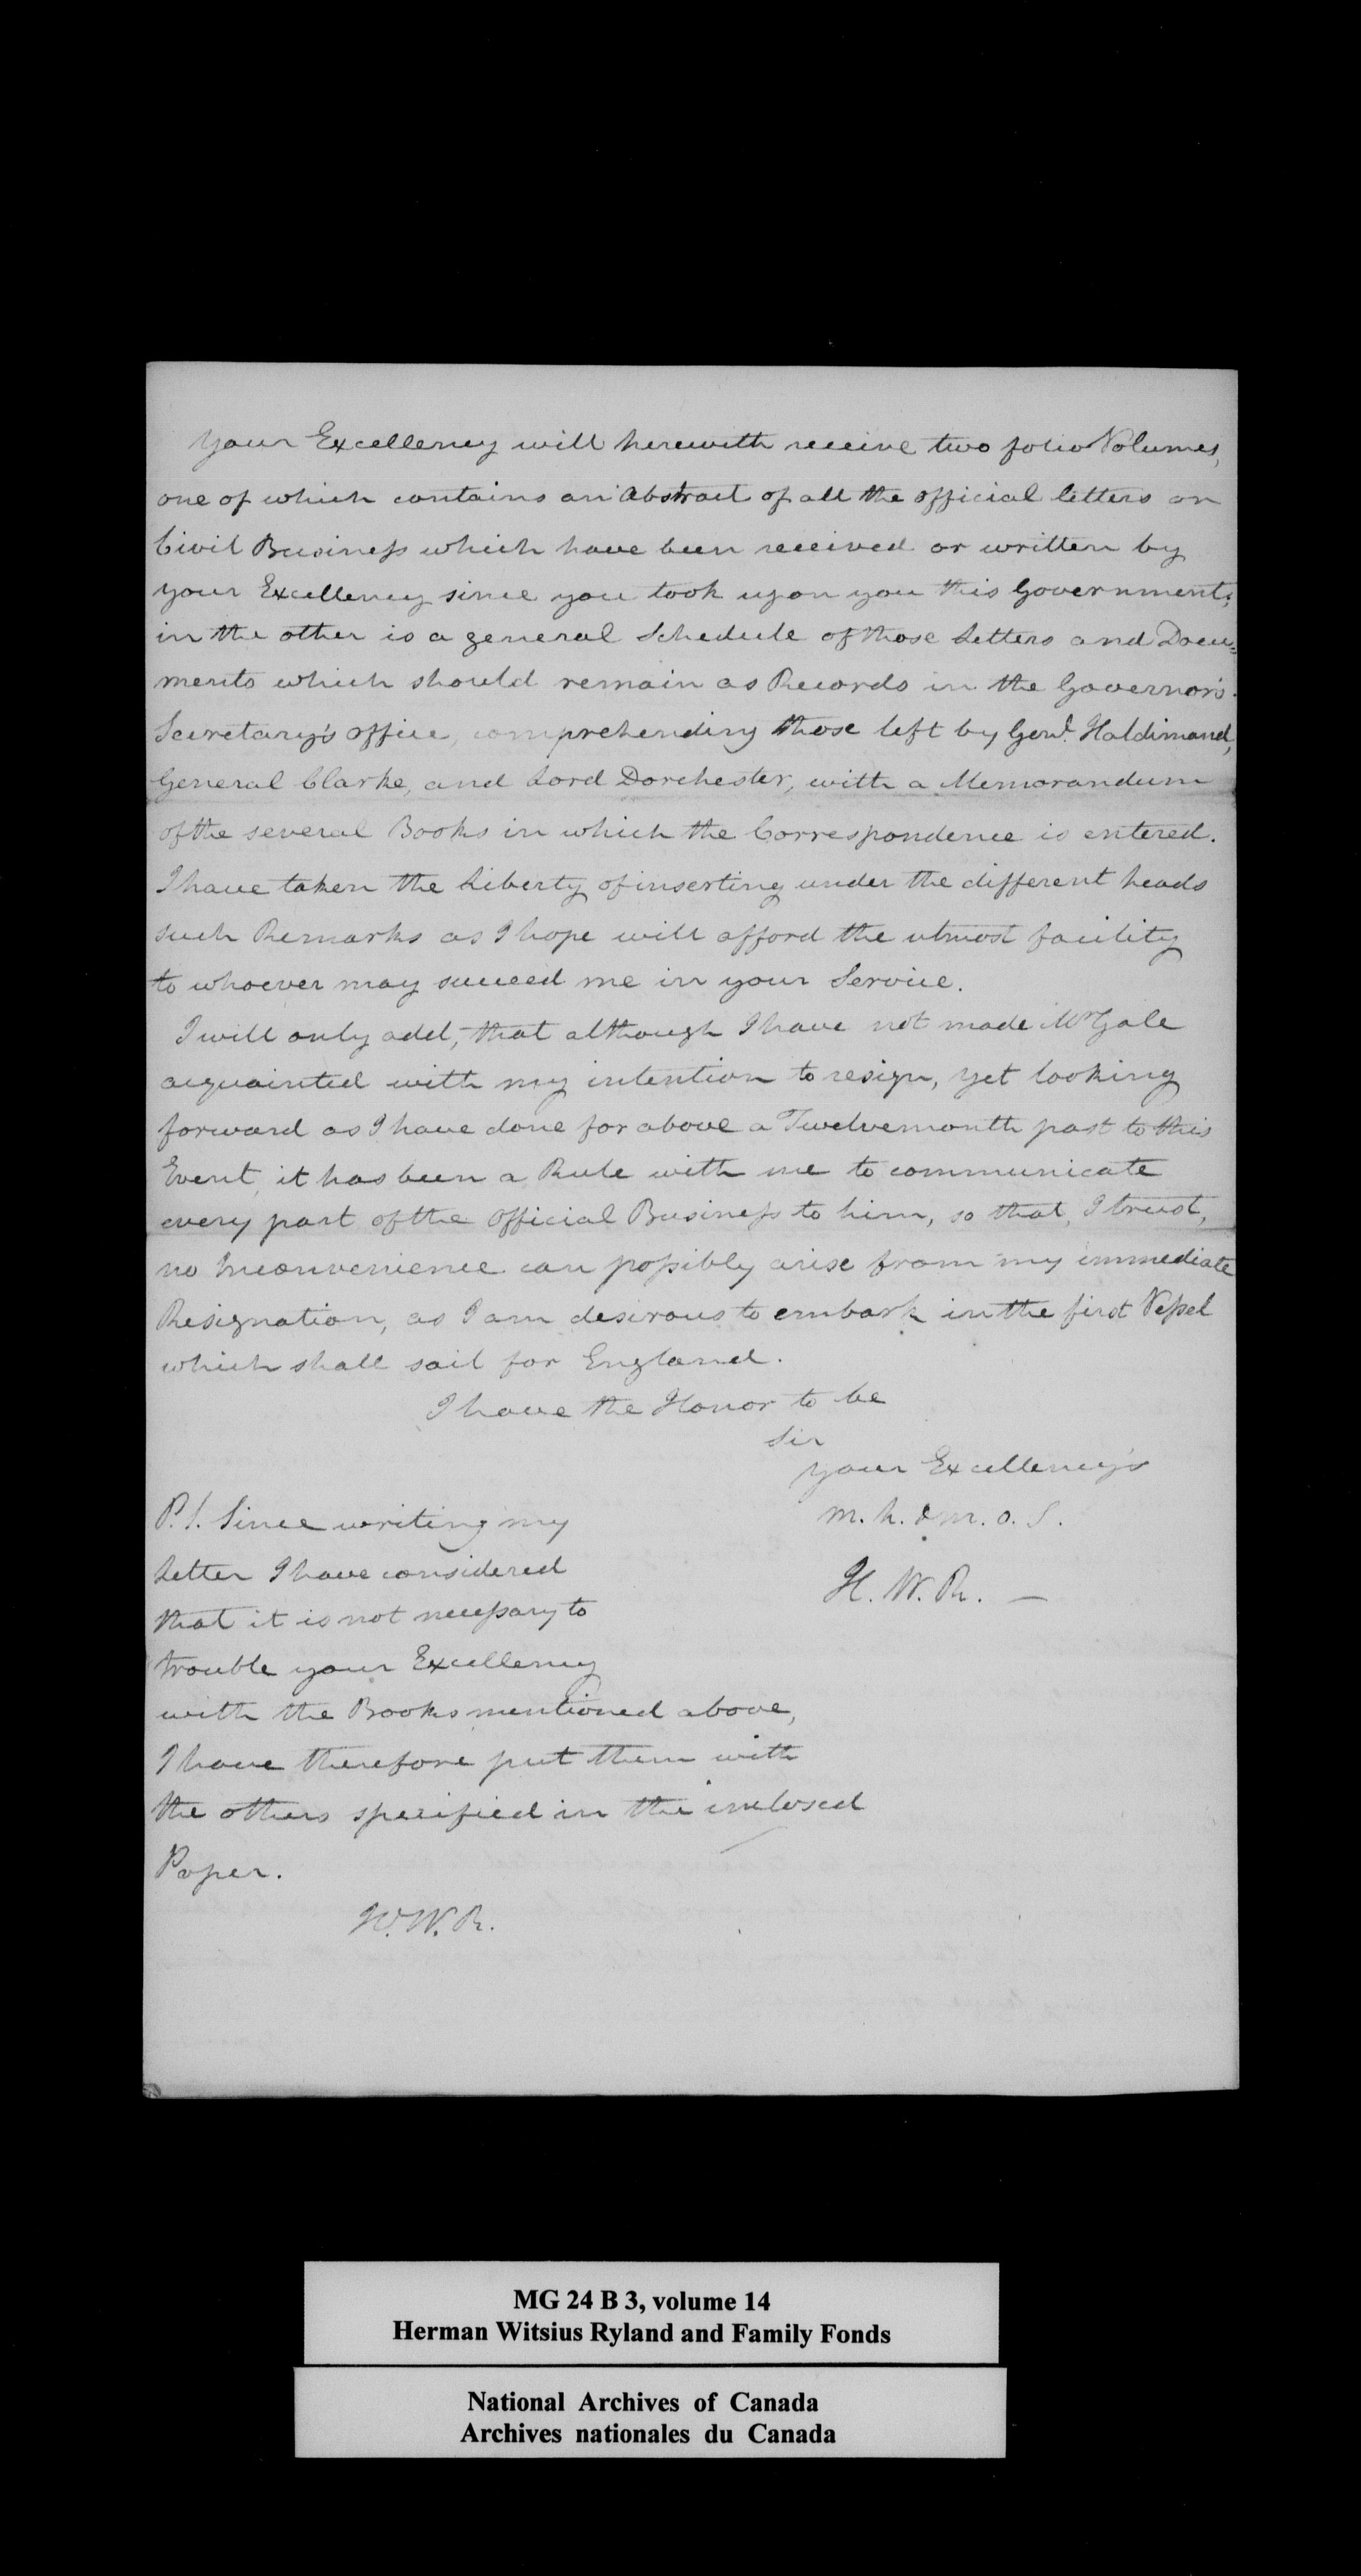 Your Excellency will herewith receive two folio Volumes,
one of which contains an Abstract of all the official letters on
Civil Business which have been received or written by
your Excellency since you took upon you this Government;
in the other is a general Schedule of those Letters and Docu=
ments which should remain as Records in the Governor's
Secretary's office, comprehending those left by Genl. Haldimand,
General Clarke, and Lord Dorchester, with a Memorandum
of the several Books in which the Correspondence is entered.
I have taken the Liberty of inserting under the different heads
such Remarks as I hope will afford the utmost facility
to whoever may succeed me in your Service.
I will only add, that although I have not made Mr Gale
acquainted with my intention to resign, yet looking
forward as I have done for above a Twelvemonth past to this
Event, it has been a Rule with me to communicate
every part of the Official Business to him, so that, I trust,
no Inconvenience can possibly arise from my immediate
Resignation, as I am desirous to embark in the first Vessel
which shall sail for England.
I have the Honor to be
Sir
your Excellency's
m. h. & m. o. S.
H. W. R. —
P.S. Since writing my
Letter I have considered
that it is not necessary to
trouble your Excellency
with the Books mentioned above,
I have therefore put them with
the others specified in the inclosed
Paper.
H. W. R.
MG 24 B 3, volume 14
Herman Witsius Ryland and Family Fonds
National Archives of Canada
Archives nationales du Canada